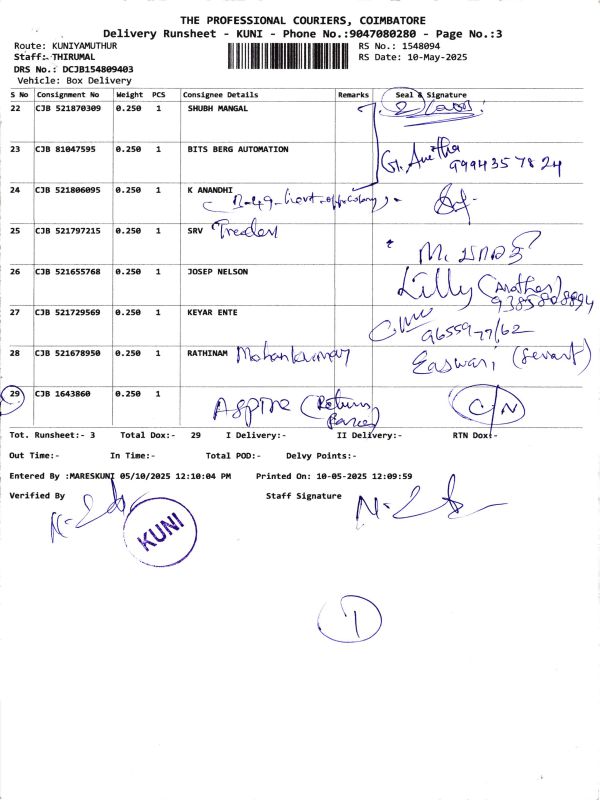 THE PROFESSIONAL COURIERS, COIMBATORE
Delivery Runsheet - KUNI - Phone No.:9047080280 - Page No.:3
Route: KUNIYAMUTHUR RS No.: 1548094
Staff:- THIRUMAL RS Date: 10-May-2025
DRS No.: DCJB154809403
Vehicle: Box Delivery
S No Consignment No Weight PCS Consignee Details Remarks Seal & Signature
22 CJB 521870309 0.250 1 SHUBH MANGAL
23 CJB 81047595 0.250 1 BITS BERG AUTOMATION G. Anitha
9994357824
24 CJB 521806095 0.250 1 K ANANDHI
25 CJB 521797215 0.250 1 SRV Traders
26 CJB 521655768 0.250 1 JOSEP NELSON Lilly (Mother)
9385808894
27 CJB 521729569 0.250 1 KEYAR ENTE
9655977162
28 CJB 521678950 0.250 1 RATHINAM Mohankumar Easwari (Servant)
29 CJB 1643860 0.250 1 Aspire (Return C/N
Tot. Runsheet:- 3 Total Dox:- 29 I Delivery:- II Delivery:- RTN Dox:-
Out Time:- In Time:- Total POD:- Delvy Points:-
Entered By :MARESKUNI 05/10/2025 12:10:04 PM Printed On: 10-05-2025 12:09:59
Verified By Staff Signature
KUNI
1